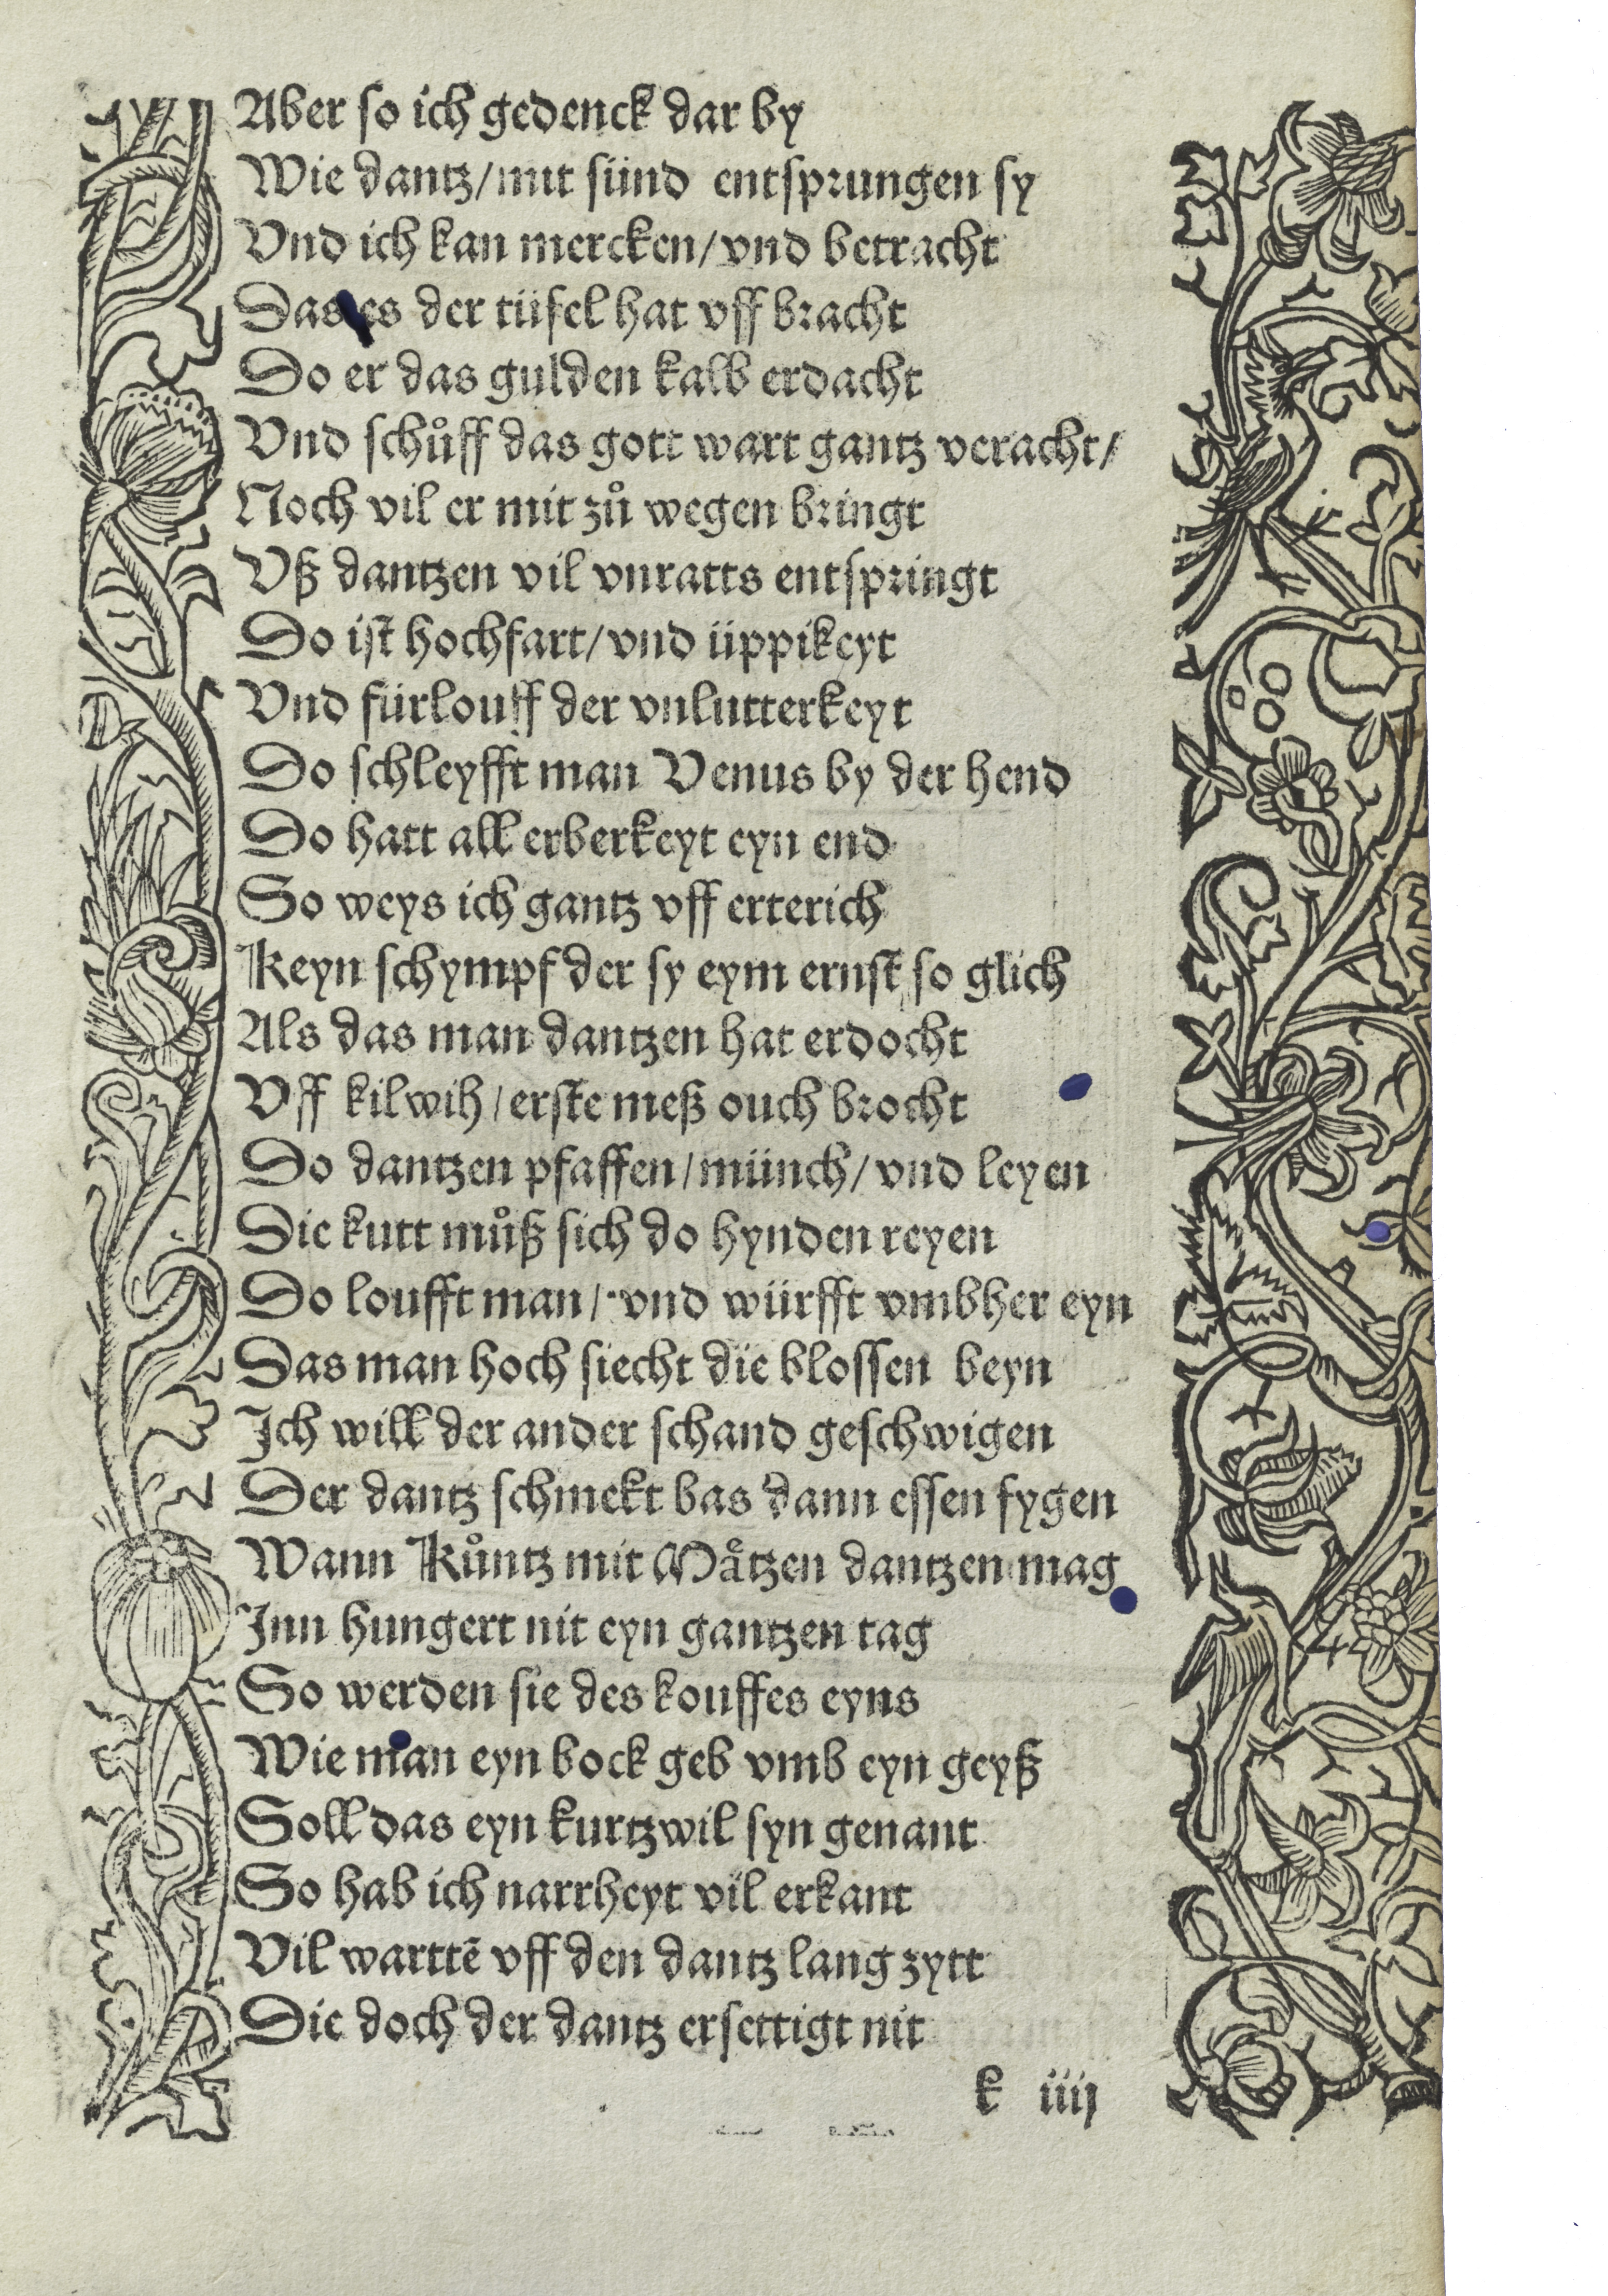 Aber so ich gedenck dar by
Wie dantz/mit sünd entsprungen sy
Vnd ich kan mercken/vnd betracht
Das es der tüfel hat vff bracht
Do er das gulden kalb erdacht
Vnd schůff das gott wart gantz veracht/
Noch vil er mit zů wegen bringt
Vß dantzen vil vnratts entspringt
Do ist hochfart/vnd üppikeyt
Vnd fürlouff der vnlutterkeyt
Do schleyfft man Venus by der hend
Do hatt all erberkeyt eyn end
So weys ich gantz vff erterich
Keyn schympf der sy eym ernst so glich
Als das man dantzen hat erdocht
Vff kilwih/erste meß ouch brocht
Do dantzen pfaffen/münch/vnd leyen
Die kutt můß sich do hynden reyen
Do loufft man/vnd würfft vmbher eyn
Das man hoch siecht die blossen beyn
Ich will der ander schand geschwigen
Der dantz schmekt bas dann essen fygen
Wann Kůntz mit Måtzen dantzen mag
Inn hungert nit eyn gantzen tag
So werden sie des kouffes eyns
Wie man eyn bock geb vmb eyn geyß
Soll das eyn kurtzwil syn genant
So hab ich narrheyt vil erkant
Vil warttē vff den dantz lang zytt
Die doch der dantz ersettigt nit
k iiij